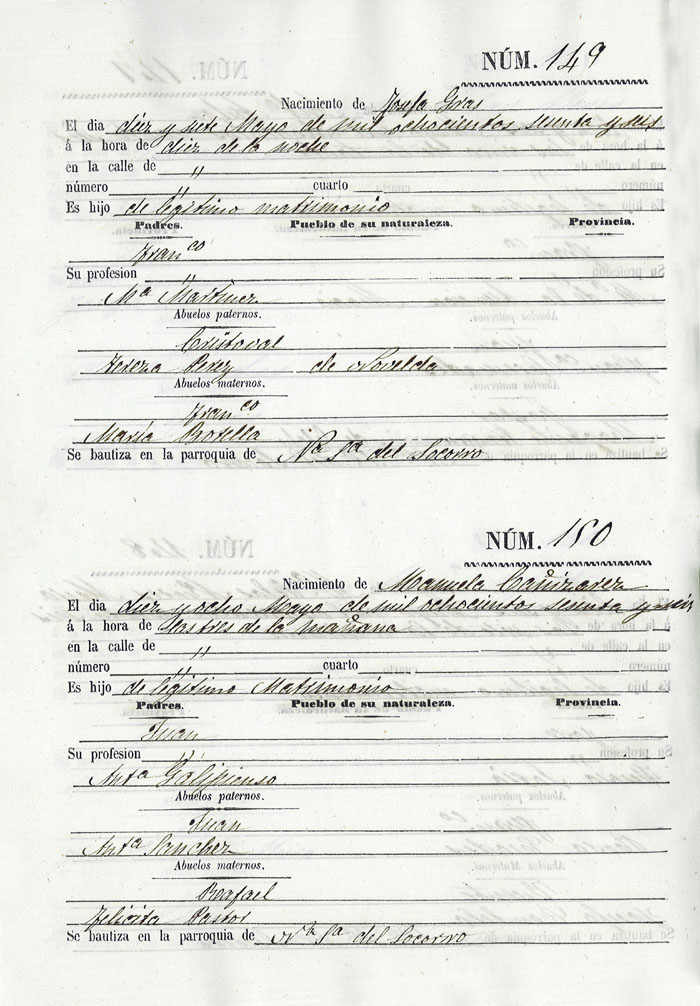 NÚM. 149
Nacimiento de Josefa Gras
El dia diez y siete Mayo de mil ochocientos sesenta y seis
á la hora de diez de la noche
en la calle de "
número " cuarto
Es hijo de legitimo matrimonio
Padres. Pueblo de su naturaleza. Provincia.
Franco
Su profesion "
Ma Martinez
Abuelos paternos.
Cristoval
Teresa Perez de Novelda
Abuelos maternos.
Franco
María Botella
Se bautiza en la parroquia de Na Sa del Socorro
NÚM. 150
Nacimiento de Manuela Cañizarez
El dia diez y ocho Mayo de mil ochocientos sesenta y seis
á la hora de las tres de la mañana
en la calle de "
número " cuarto
Es hijo de legitimo Matrimonio
Padres. Pueblo de su naturaleza. Provincia.
Juan
Su profesion "
Anta Galipienso
Abuelos paternos.
Juan
Anta Sanchez
Abuelos maternos.
Rafael
Felicita Pastor
Se bautiza en la parroquia de Na Sa del Socorro